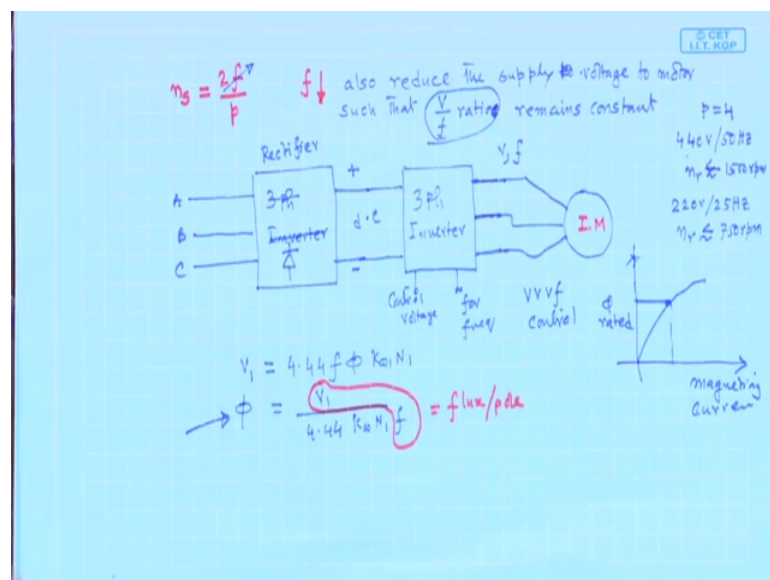 © CET
I.I.T. KGP
n_s = 2f/p
f↓ also reduce the supply voltage to motor
such that V/f rating remains constant
P=4
440V/50Hz
n_r ≈ 1500rpm
220V/25Hz
n_r ≈ 750rpm
Rectifier
A
B
C
3-Ph
Inverter
+
d.c
-
3Ph
Inverter
V, f
I.M
Control voltage
for freq
VVVf
control
Φ
rated
magneting
current
V₁ = 4.44 f Φ Kω₁ N₁
Φ = V₁ / 4.44 Kω N₁ f = flux/pole